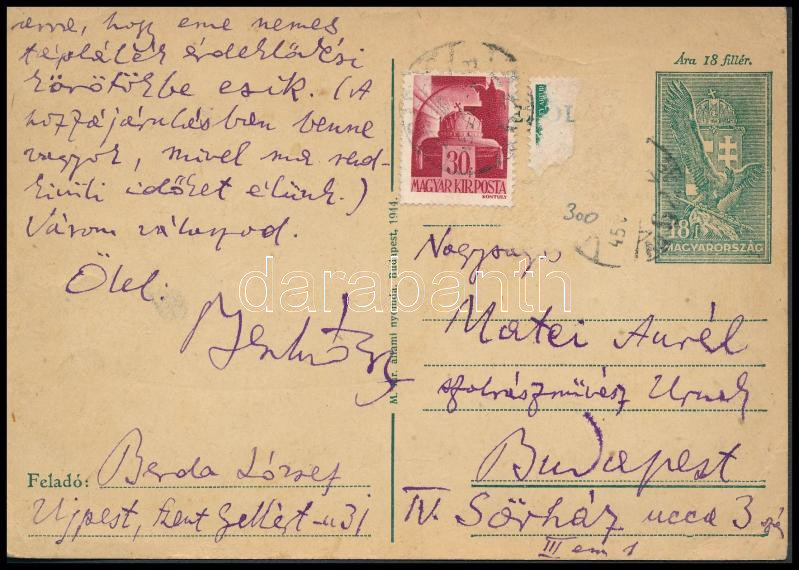 arra, hogy eme nemes
táplálék érdeklődési
körötökbe esik. (A
hozzájárulásban benne
vagyok, mivel ma rend-
kívüli időket élünk.)
Várom válaszod.
Ölel:
Feladó: Berda József
Ujpest, Szent Gellért-u 31
M. kir. állami nyomda, Budapest, 1944.
30
MAGYAR KIR. POSTA
KONTULY
Ára 18 fillér.
18 f
MAGYARORSZÁG
300
Nagyságos
Matei Aurél
szobrászművész Urnak
Budapest
IV. Sörház ucca 3
III em 1
darabanth